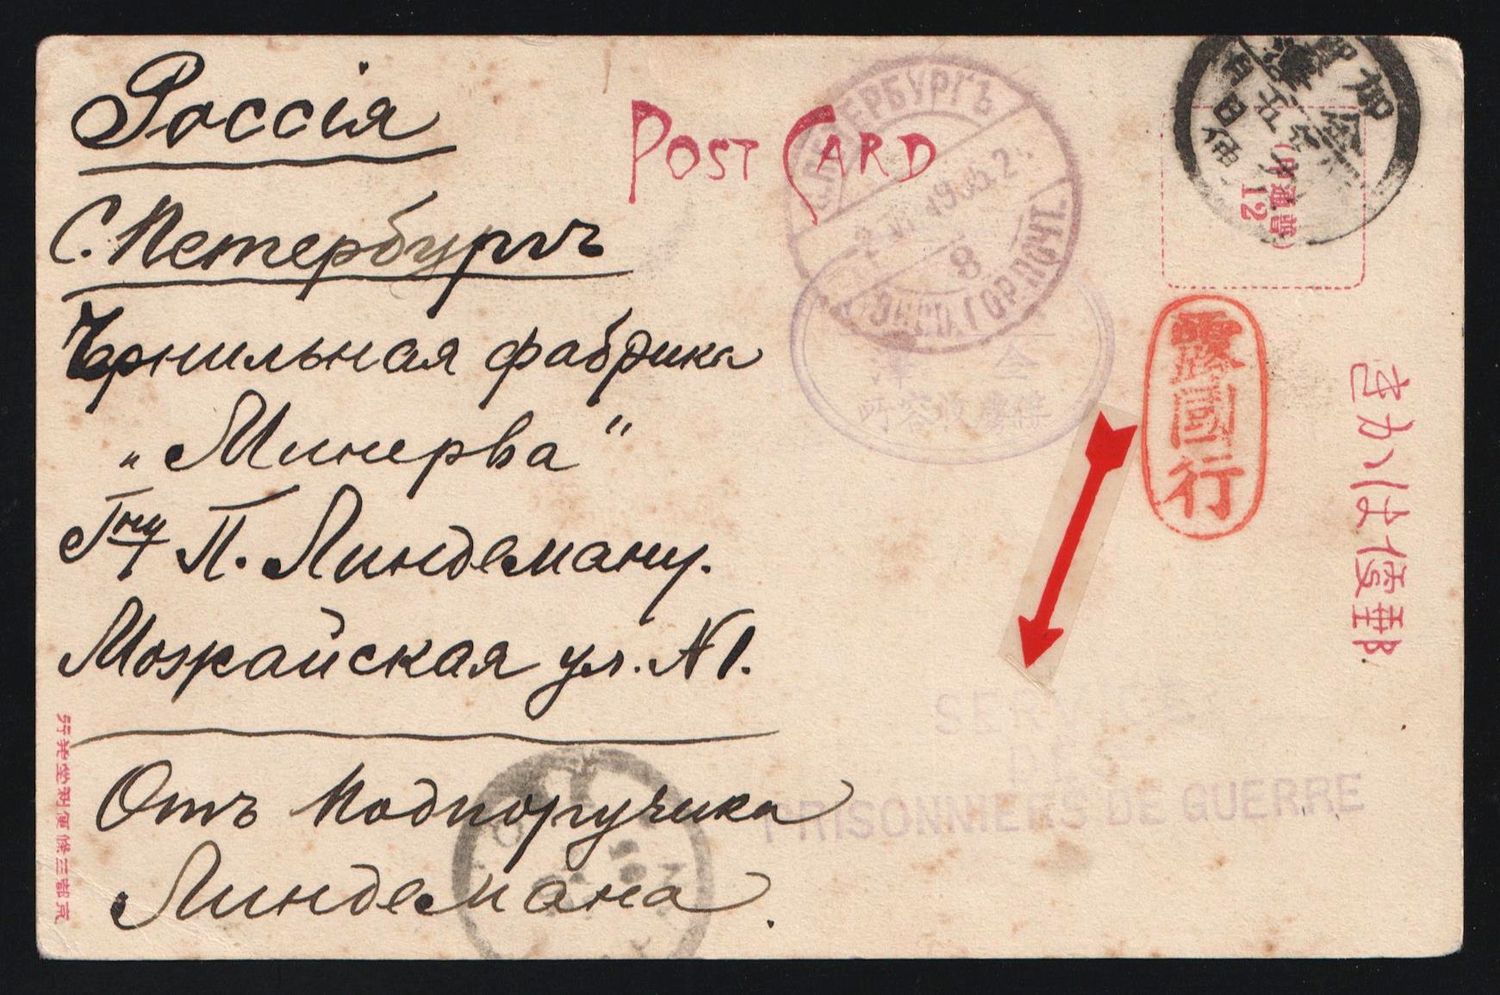 Россія
С. Петербургъ
Чернильная фабрика
„Минерва"
Гну П. Линдеману.
Можайская ул. № 1.
Отъ Подпоручика
Линдемана.
POST CARD
С.ПЕТЕРБУРГЪ
1905
8
ГОР. ПОЧТ.
加賀
金澤
12
露國行
きかは便郵
SERVICE
DES
PRISONNIERS DE GUERRE